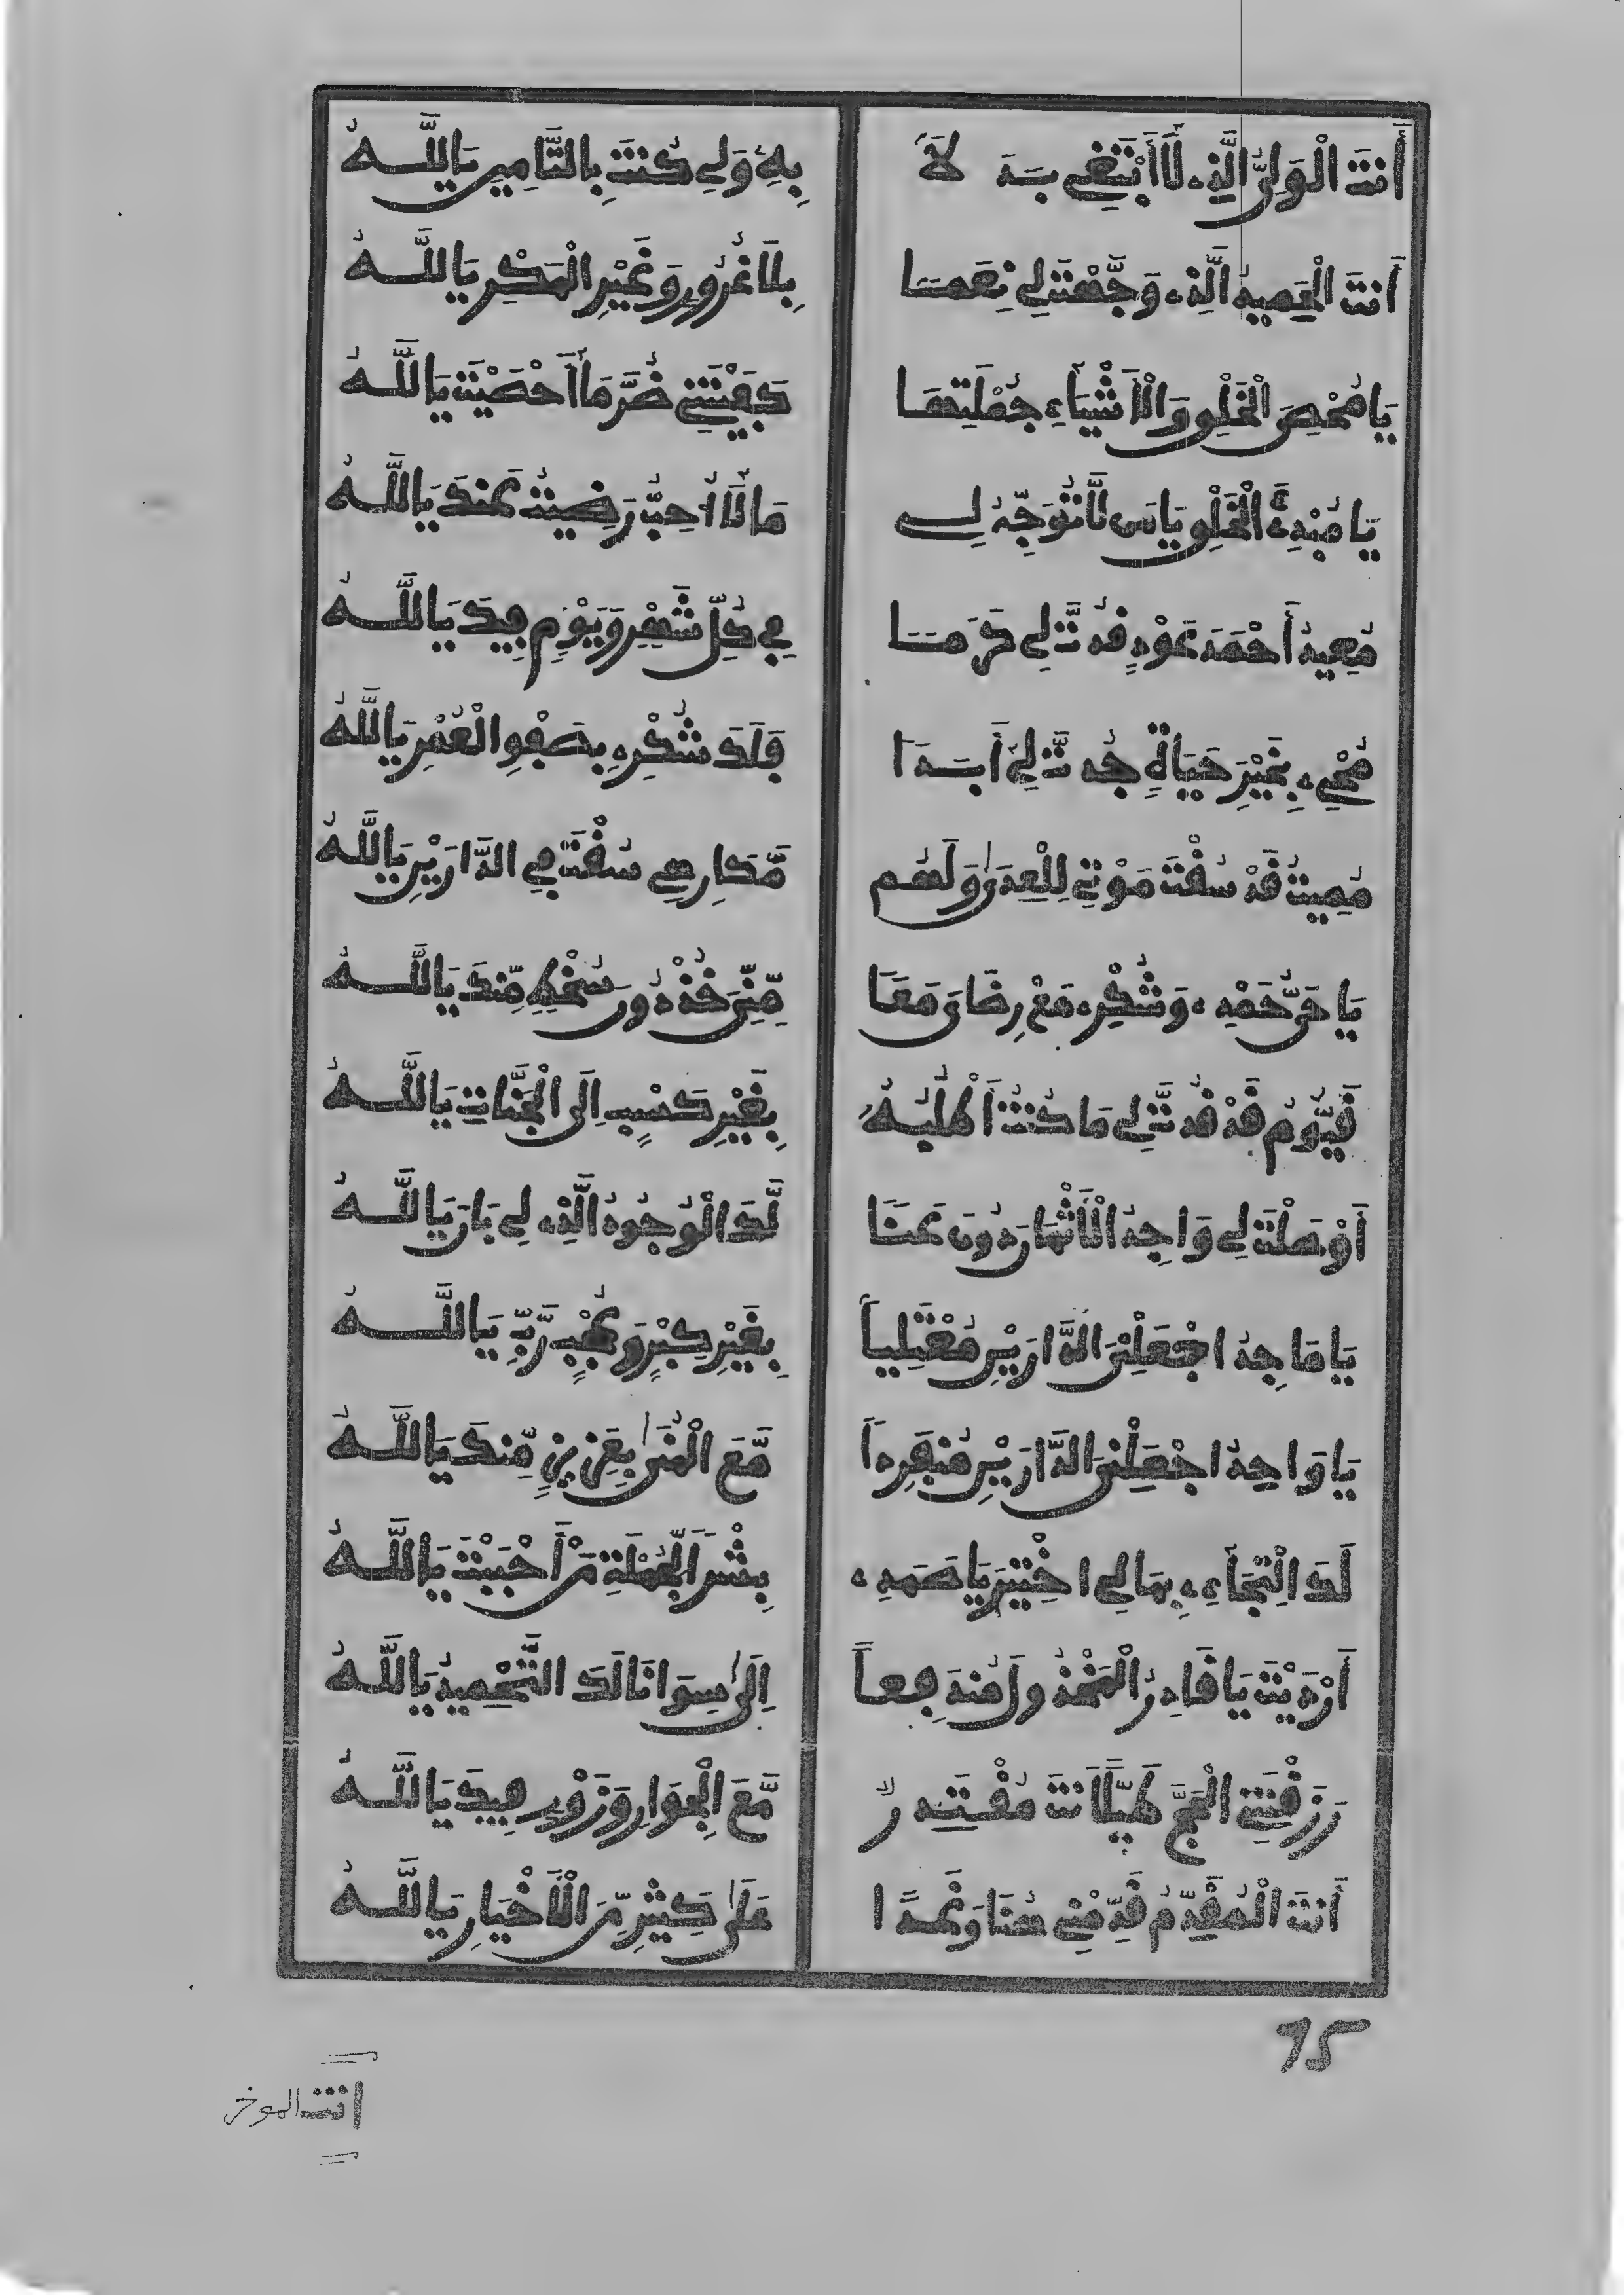 أَنتَ الْوَلِيُّ الَّذِي لَا أَبْتَغِي بَدَلًا بِهِ وَلِي كُنتَ بِالتَّامِينِ يَا اللَّهُ
أَنتَ الْحَمِيدُ الَّذِي وَجَّهْتَ لِي نِعَمًا بِلَا غُرُورٍ وَغَيْرِ الْمَكْرِ يَا اللَّهُ
يَا مُحْصِيَ الْخَلْقِ وَالْأَشْيَاءِ جُمْلَتِهَا كَفَيْتَنِي ضُرَّ مَا أَحْصَيْتَ يَا اللَّهُ
يَا مُبْدِئَ الْخَلْقِ يَا مَن لَّا تُوَجِّهُ لِي مَا لَا أُحِبُّ رَضِيتُ عَنكَ يَا اللَّهُ
مُعِيدُ أَحْمَدَ عَوْدٍ قُدتَّ لِي كَرَمًا فِي كُلِّ شَهْرٍ وَيَوْمٍ فِيكَ يَا اللَّهُ
مُحْيِي بِخَيْرِ حَيَاةٍ جُدتَّ لِي أَبَدًا فَلَكَ شُكْرِي بِصَفْوِ الْعُمْرِ يَا اللَّهُ
مُمِيتُ قَدْ سُقْتَ مَوْتِي لِلْعِدَى وَلَهُم مَّكَارِهِي سُقْتَ فِي الدَّارَيْنِ يَا اللَّهُ
يَا حَيُّ حَمْدِي وَشُكْرِي مَعْ رِضَايَ مَعَا مِّنِّيَ خُذْ دُونَ سُخْطٍ مِّنكَ يَا اللَّهُ
قَيُّومُ قَدْ قُدتَّ لِي مَا كُنتُ أَطْلُبُهُ بِغَيْرِ كَسْبٍ إِلَى الْجَنَّاتِ يَا اللَّهُ
أَوْصَلْتَ لِي وَاجِدُ الْأَثْمَارَ دُونَ عَنَا لَّكَ الْوُجُودُ الَّذِي لِي بَانَ يَا اللَّهُ
يَا مَاجِدُ اجْعَلْنِيَ الدَّارَيْنِ مُعْتَلِياً بِغَيْرِ كِبْرٍ وَعُجْبٍ رَّبِّ يَا اللَّهُ
يَا وَاحِدُ اجْعَلْنِيَ الدَّارَيْنِ مُنفَرِداً مَّعَ الْمُنَى بِعَزِيزٍ مِّنكَ يَا اللَّهُ
لَكَ الْتِجَائِي بِمَا لِي اخْتِيرَ يَا صَمَدِي بَشِّرْ لِجُمْلَةِ مَنْ أَحْبَبْتَ يَا اللَّهُ
أَرْدَيْتَ يَا قَادِرُ الْمَخْذُولَ مُندَفِعاً إِلَى سِوَانَا لَكَ التَّحْمِيدُ يَا اللَّهُ
رَزَقْتَنِي الْحَجَّ طَيًّا أَنتَ مُقْتَدِرٌ مَّعَ الْجِوَارِ وَزَوْرٍ فِيكَ يَا اللَّهُ
أَنتَ الْمُقَدِّمُ قَدِّمْنِي هُنَا وَغَدًا عَلَى كَثِيرٍ مِّنَ الْأَخْيَارِ يَا اللَّهُ
95
انت الموخر